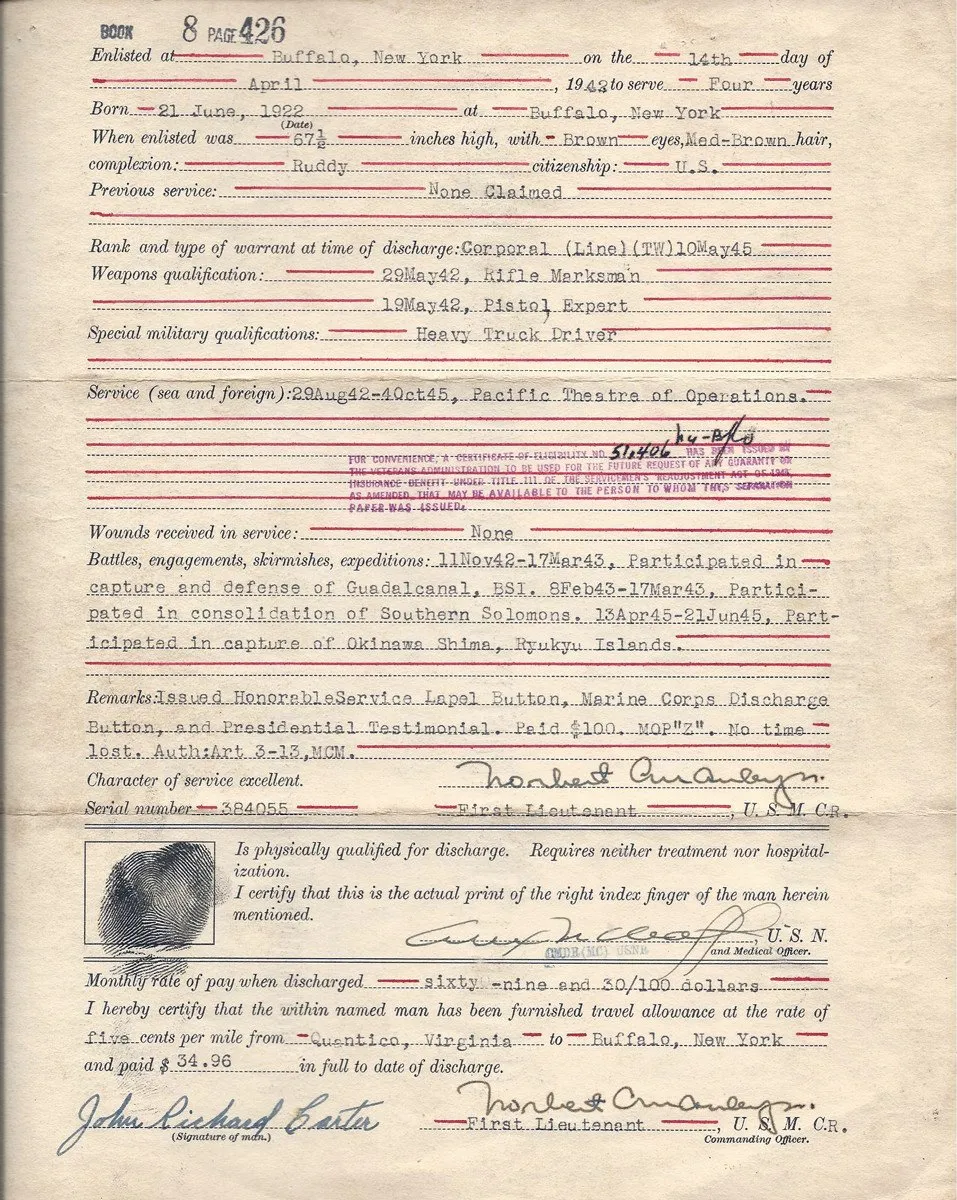 BOOK 8 PAGE 426
Enlisted at Buffalo, New York on the 14th day of
April, 1942 to serve Four years
Born 21 June, 1922 at Buffalo, New York
(Date)
When enlisted was 67½ inches high, with Brown eyes, Med-Brown hair,
complexion: Ruddy citizenship: U.S.
Previous service: None Claimed
Rank and type of warrant at time of discharge: Corporal (Line)(TW)10May45
Weapons qualification: 29May42, Rifle Marksman
19May42, Pistol Expert
Special military qualifications: Heavy Truck Driver
Service (sea and foreign): 29Aug42-4Oct45, Pacific Theatre of Operations.
FOR CONVENIENCE, A CERTIFICATE OF ELIGIBILITY NO. 51,406 HAS BEEN ISSUED BY
THE VETERANS ADMINISTRATION TO BE USED FOR THE FUTURE REQUEST OF ANY GUARANTY OR
INSURANCE BENEFIT UNDER TITLE III OF THE SERVICEMEN'S READJUSTMENT ACT OF 1944
AS AMENDED, THAT MAY BE AVAILABLE TO THE PERSON TO WHOM THIS SEPARATION
PAPER WAS ISSUED.
Wounds received in service: None
Battles, engagements, skirmishes, expeditions: 11Nov42-17Mar43, Participated in
capture and defense of Guadalcanal, BSI. 8Feb43-17Mar43, Partici-
pated in consolidation of Southern Solomons. 13Apr45-21Jun45, Part-
icipated in capture of Okinawa Shima, Ryukyu Islands.
Remarks: Issued HonorableService Lapel Button, Marine Corps Discharge
Button, and Presidential Testimonial. Paid $100. MOP"Z". No time
lost. Auth:Art 3-13,MCM.
Character of service excellent. Norbert
Serial number 384055 First Lieutenant, U. S. M. C.R.
Is physically qualified for discharge. Requires neither treatment nor hospital-
ization.
I certify that this is the actual print of the right index finger of the man herein
mentioned.
, U. S. N.
CMDR(MC) USNR and Medical Officer.
Monthly rate of pay when discharged sixty -nine and 30/100 dollars
I hereby certify that the within named man has been furnished travel allowance at the rate of
five cents per mile from Quantico, Virginia to Buffalo, New York
and paid $ 34.96 in full to date of discharge.
John Richard Carter Norbert
(Signature of man.) First Lieutenant, U. S. M. C.R.
Commanding Officer.